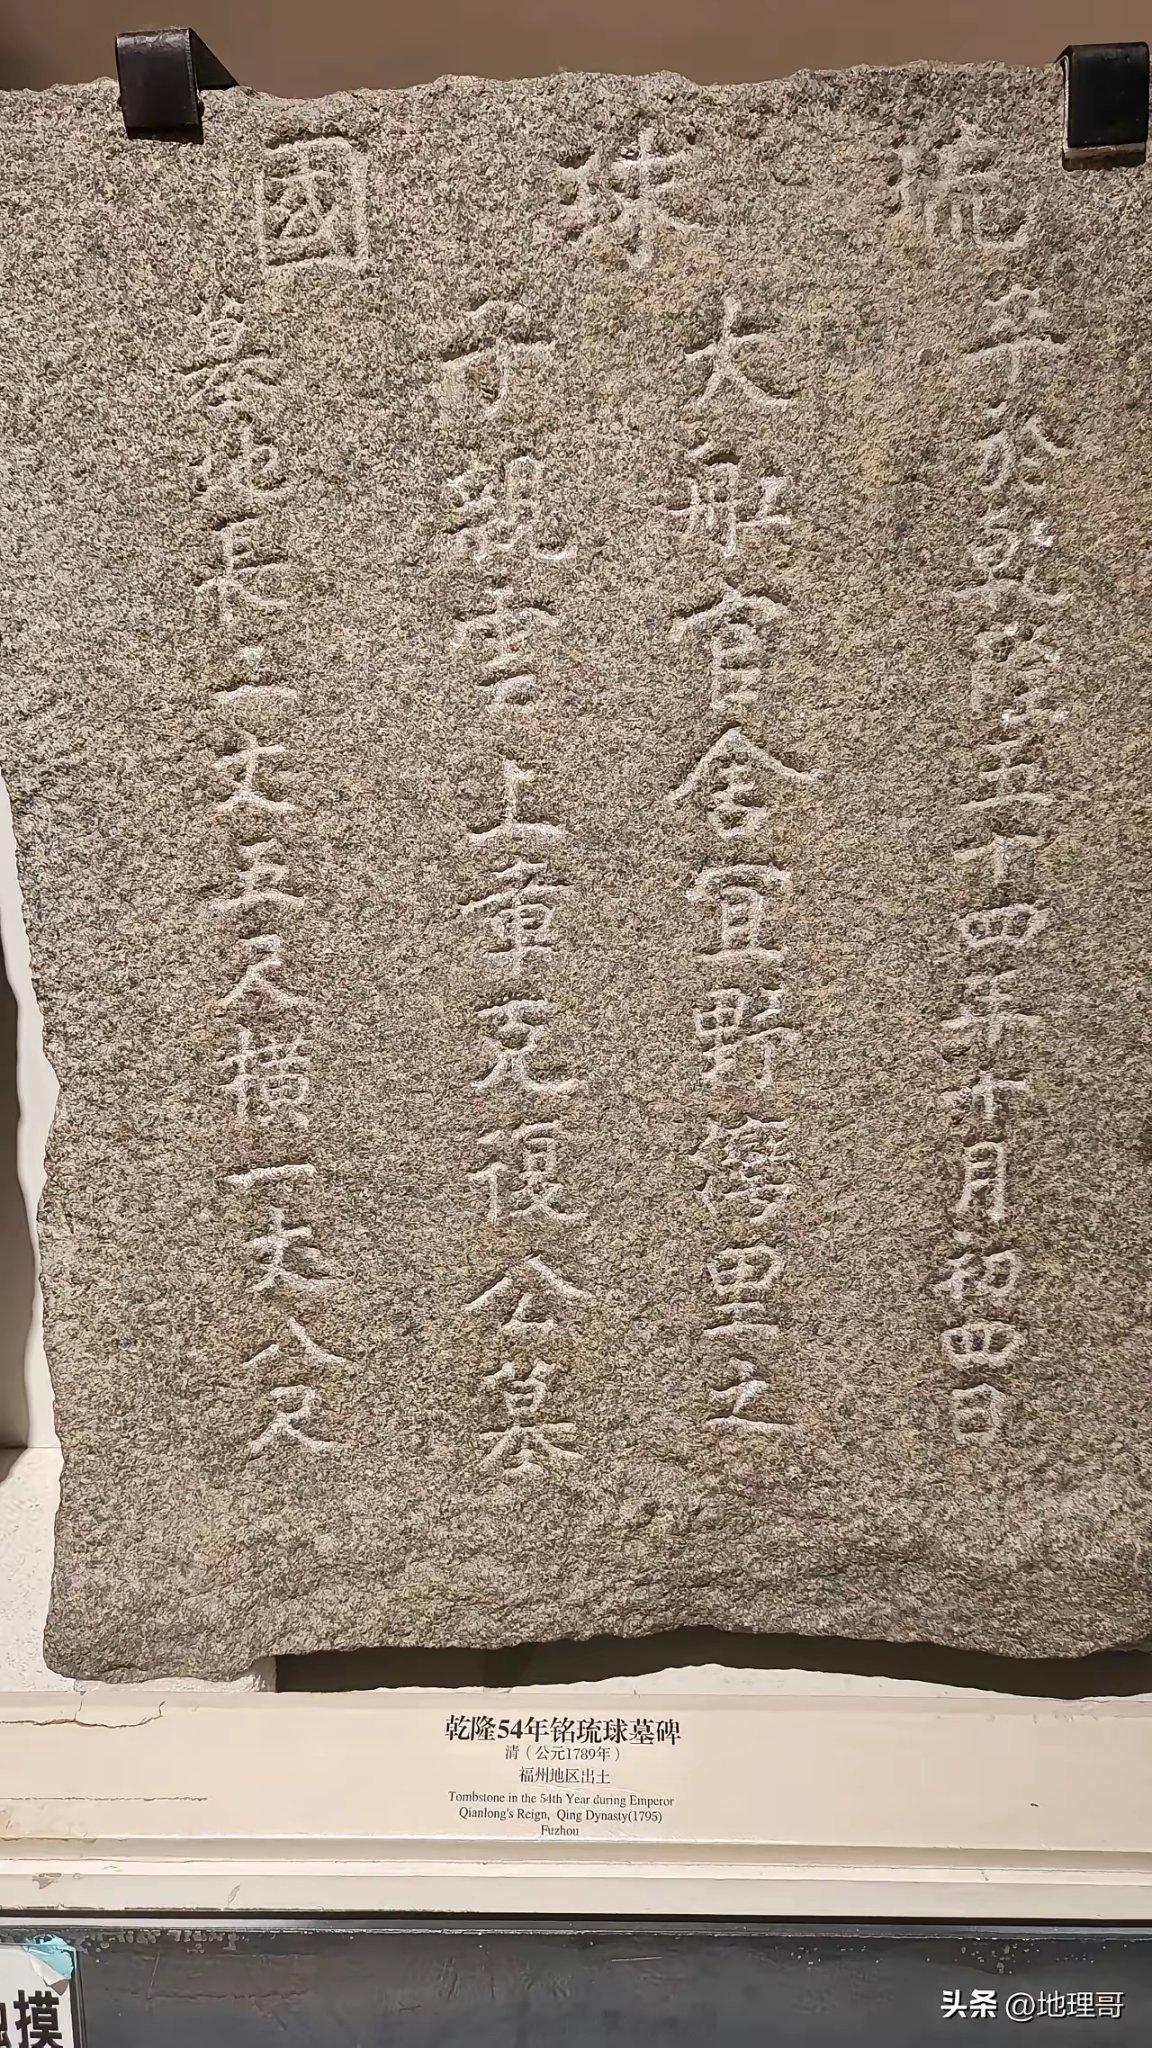 琉球國
卒於乾隆五十四年十月初四日
大舡官舍宜野灣里之
子親雲上章克復公墓
墓地長二丈五尺橫一丈八尺
乾隆54年铭琉球墓碑
清（公元1789年）
福州地区出土
Tombstone in the 54th Year during Emperor
Qianlong's Reign, Qing Dynasty(1795)
Fuzhou
摸
头条 @地理哥